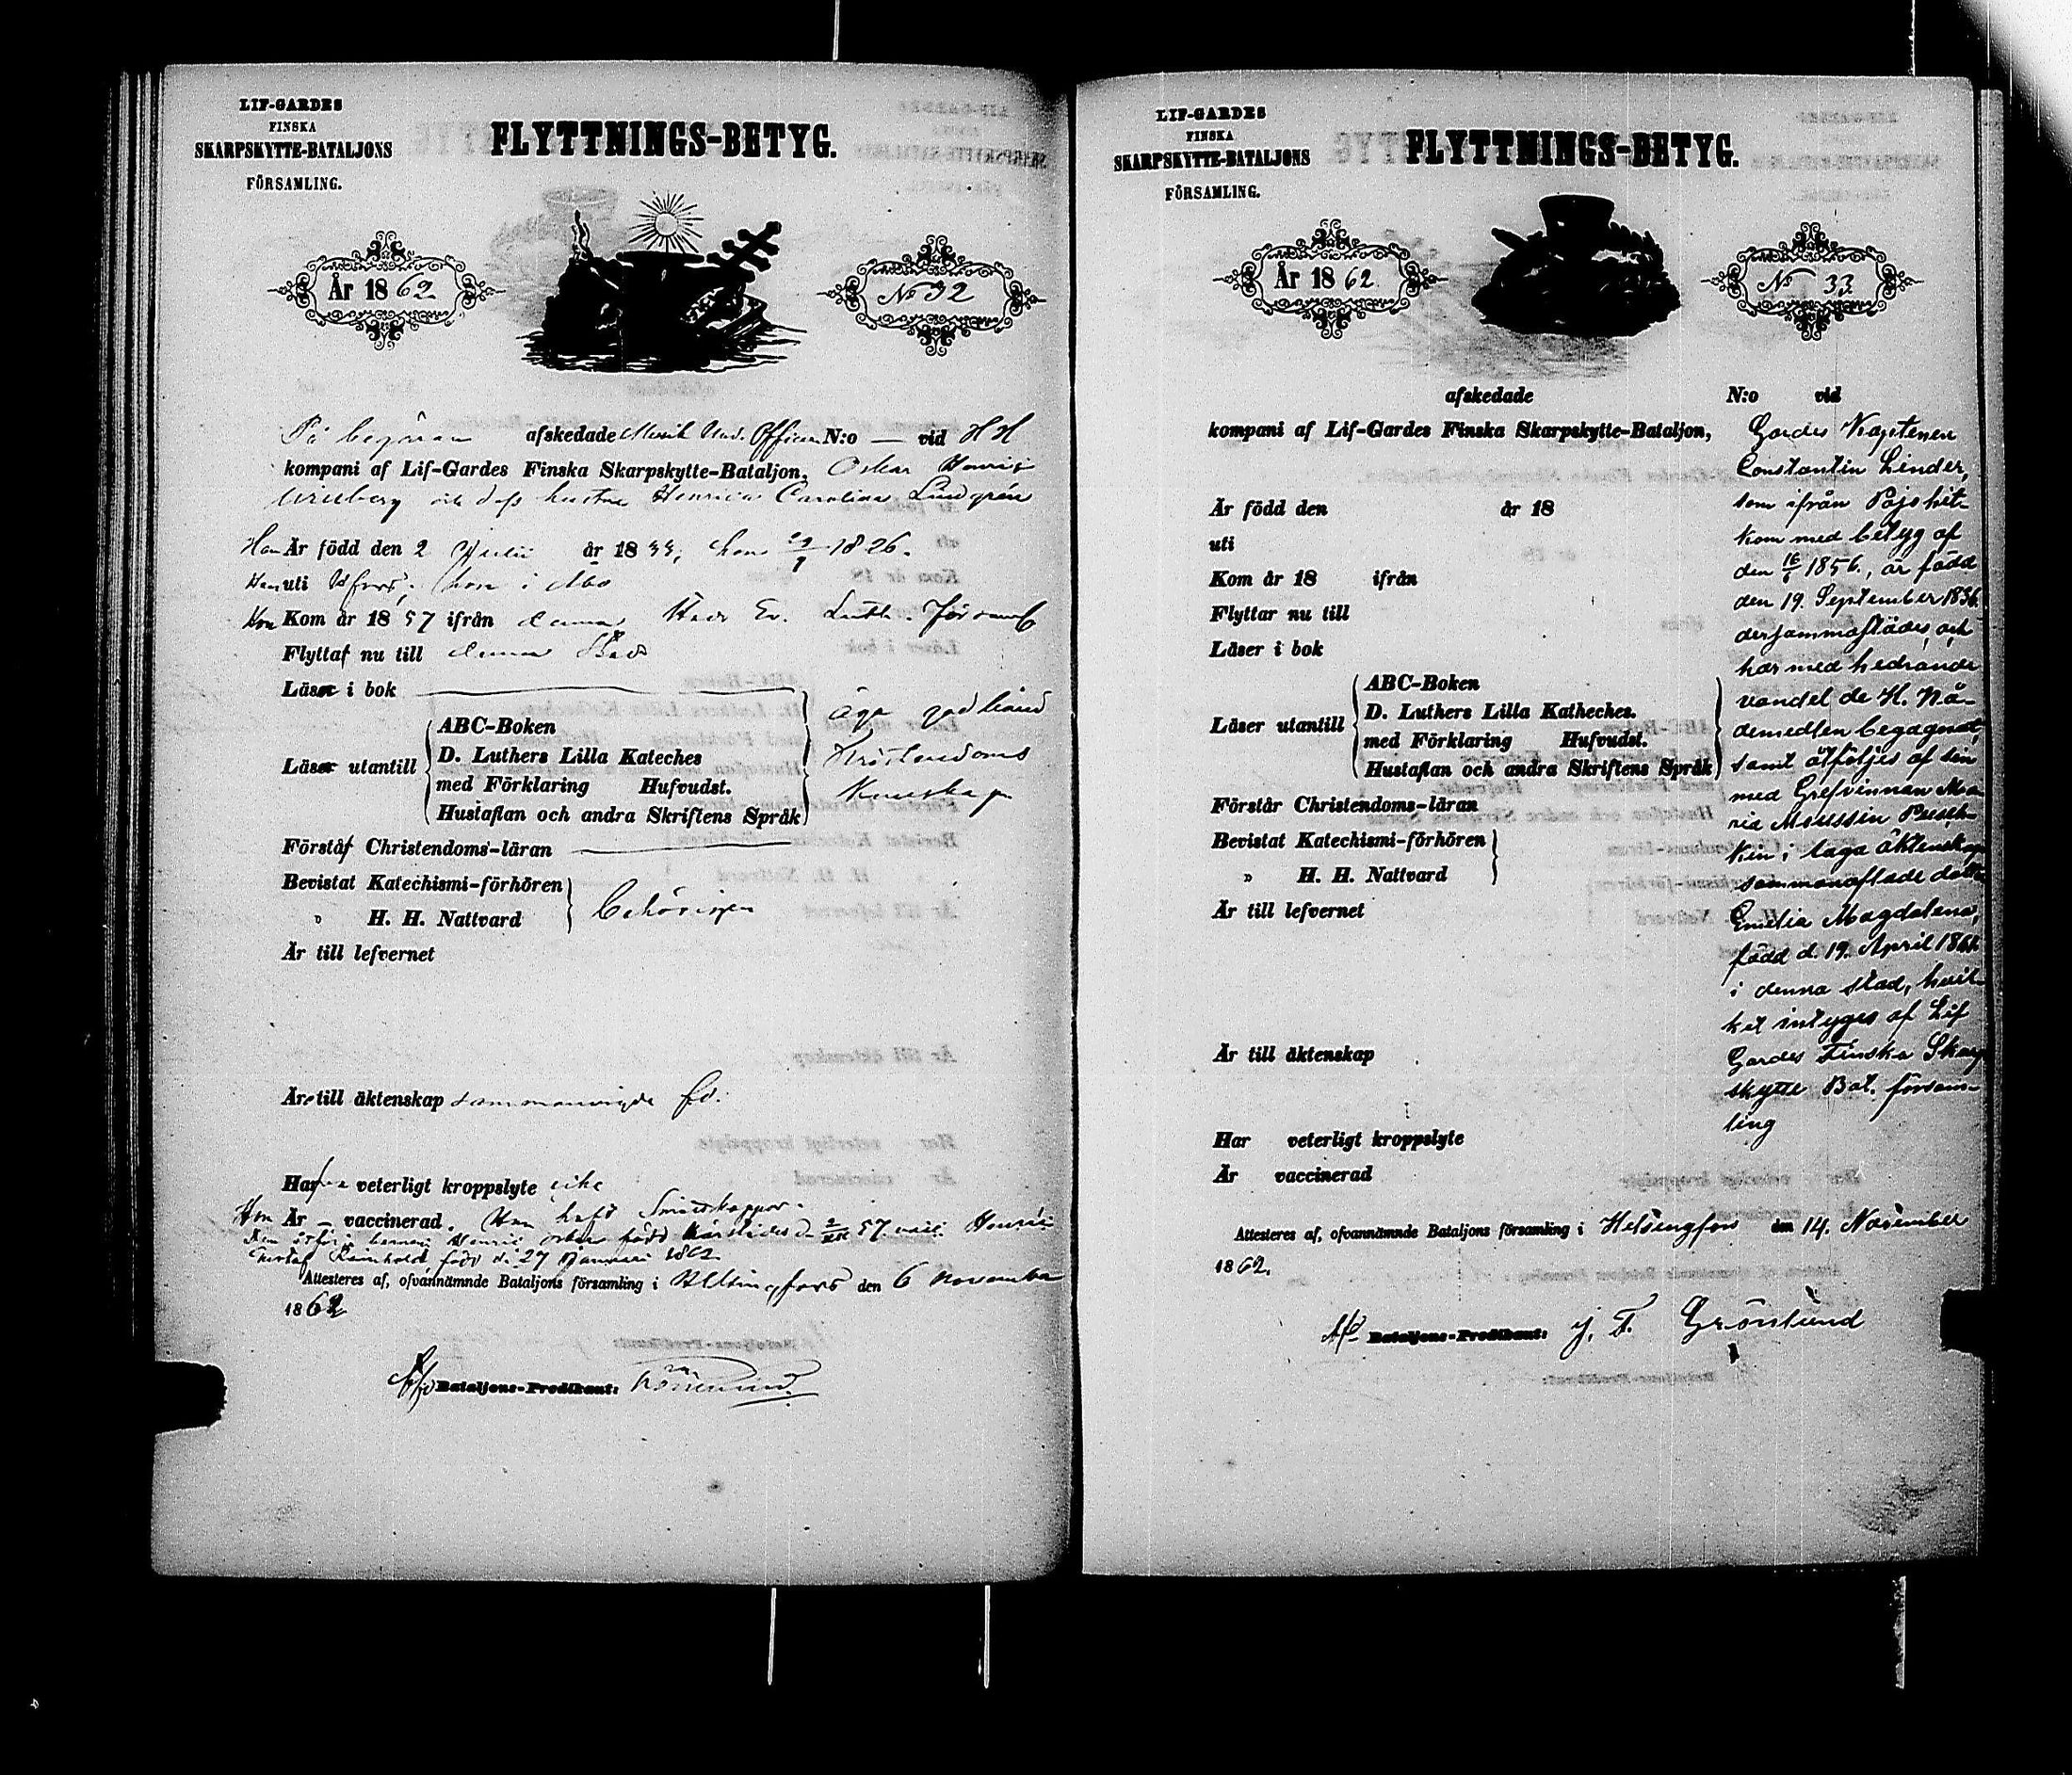 LIF-GARDES
FINSKA
SKARPSKYTTE-BATALJONS
FÖRSAMLING.
FLYTTNINGS-BETYG.
År 1862
No 32
På begäran afskedade Musik Und. Officer N:o — vid
kompani af Lif-Gardes Finska Skarpskytte-Bataljon, Oskar Henric
och dess hustru Henrica Carolina Lundgrén
Han Är född den 2 år 1833, hon 1826.
Han uti hon i Åbo
Hon Kom år 1857 ifrån denna Stads Ev. Luth. Församl
Flyttaf nu till denna Stad
Läser i bok
ABC-Boken
D. Luthers Lilla Kateches
Läser utantill
med Förklaring Hufvudst.
Hustaflan och andra Skriftens Språk
äga godkänd
Kristendoms
Kunskap
Förstår Christendoms-läran
Bevistat Katechismi-förhören
" H. H. Nattvard
behörigen
Är till lefvernet
Äro till äktenskap sammanvigde
Hafva veterligt kroppslyte icke
Hon Är – vaccinerad. Han haft Smittkoppor.
barnen Henric Oskar född härstädes d. 57. Henric
Gustaf Reinhold, född d. 27 Januari 1862
Attesteres af, ofvannämnde Bataljons församling i Helsingfors den 6 November
1862
Bataljons-Predikant: Grönlund.
LIF-GARDES
FINSKA
SKARPSKYTTE-BATALJONS
FÖRSAMLING.
FLYTTNINGS-BETYG.
År 1862
No 33.
afskedade N:o vid
kompani af Lif-Gardes Finska Skarpskytte-Bataljon,
Är född den år 18
uti
Kom år 18 ifrån
Flyttar nu till
Läser i bok
ABC-Boken
D. Luthers Lilla Katheches.
Läser utantill
med Förklaring Hufvudst.
Hustaflan och andra Skriftens Språk
Förstår Christendoms-läran
Bevistat Katechismi-förhören
" H. H. Nattvard
Är till lefvernet
Är till äktenskap
Har veterligt kroppslyte
Är vaccinerad
Gardes Kaptenen
Constantin Linder,
som ifrån Pojo hit-
kom med betyg af
den 16/6 1856., är född
den 19. September 1836
dersammastädes, och
har med hedrande
vandel de H. Nå-
demedlen begagnat,
samt åtföljes af sin
med Grefvinnan Ma-
ria Moussin Pusch-
kin i laga äktenskap
sammanaflade dotter
Emilia Magdalena,
född d. 19. April 1861
i denna stad, hvil-
ket intyges af Lif
Gardes Finska Skarp
skytte Bat. försam-
ling
Attesteres af, ofvannämnde Bataljons församling i Helsingfors den 14. November
1862.
Bataljons-Predikant: J. F. Grönlund